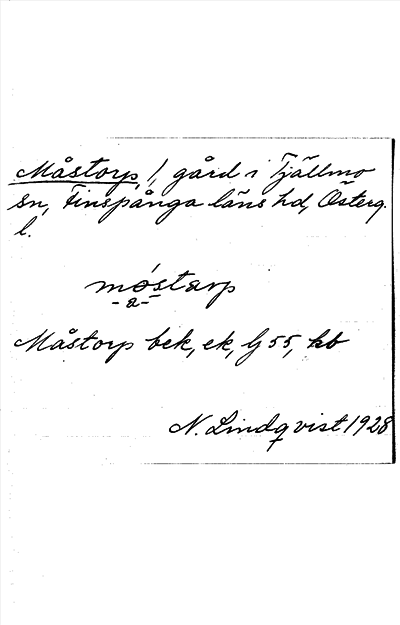 Måstorp, /, gård i Tjällmo
sn, Finspånga läns hd, Österg.
l.
móstarp
-a-
Måstorp bek, ek, Lj 55, kb
N. Lindqvist 1928